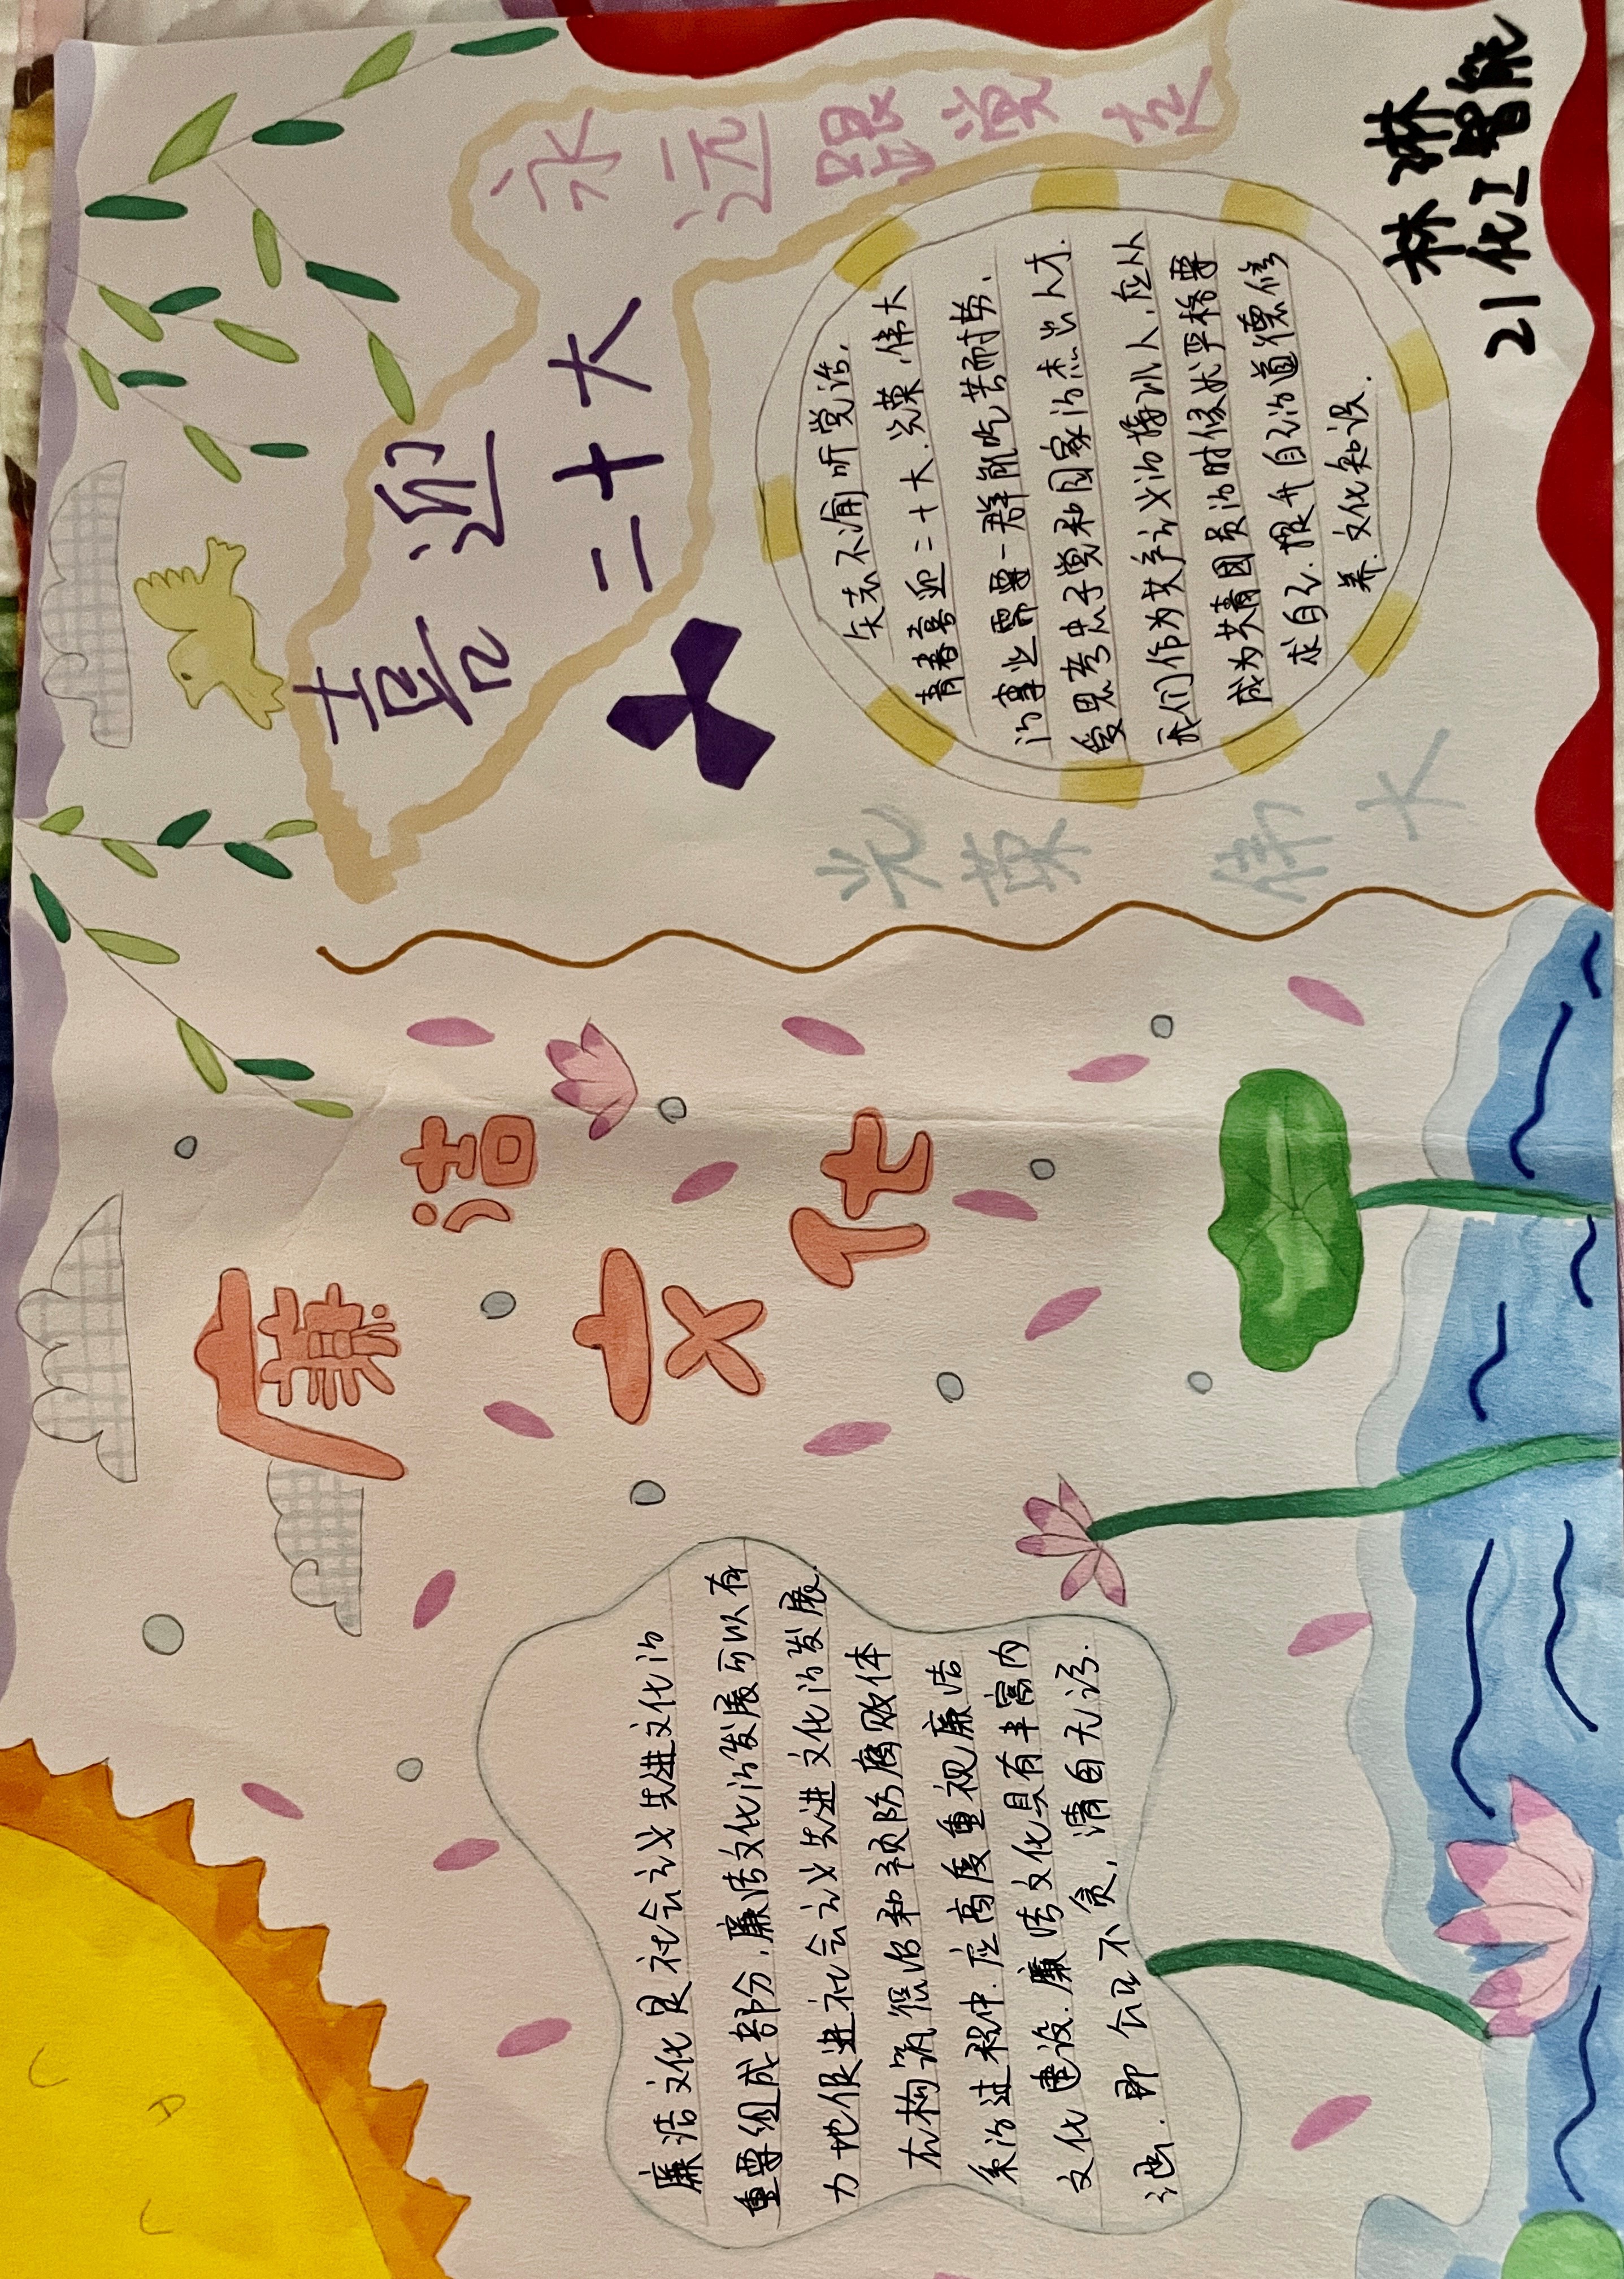 廉洁
文化
廉洁文化是社会主义先进文化的
重要组成部分,廉洁文化的发展可以有
力地促进社会主义先进文化的发展.
在构筑惩治和预防腐败体
系的进程中.应高度重视廉洁
文化建设.廉洁文化具有丰富内
涵.即公正不贪,清白无污.
喜迎
二十大
永远跟党走
矢志不渝听党话,
青春喜迎二十大.光荣,伟大
的事业需要一群能吃苦耐劳、
爱思考忠于党和国家的杰出人才.
我们作为共产主义的接班人,应从
成为共青团员的时候就严格要
求自己.提升自己的道德修
养.文化知识.
光荣 伟大
林琳
21化工智能